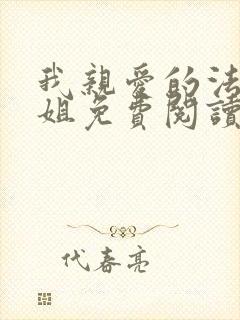 我親愛的法
姐免費閱讀
代春亮